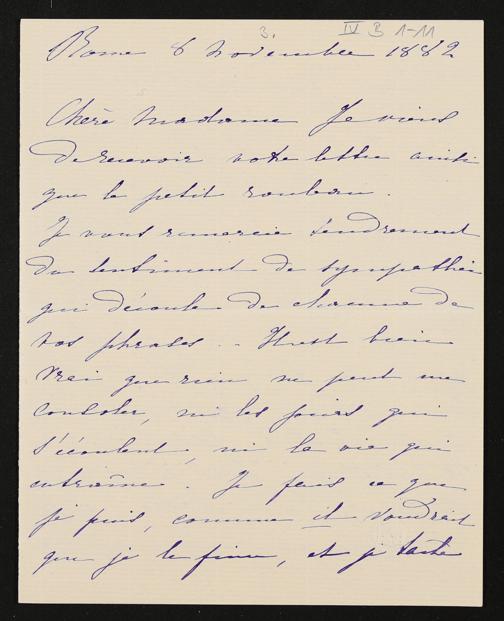 3. IV B 1-11
Rome 8 Novembre 1882
Chère Madame Je viens
de recevoir votre lettre ainsi
que le petit rouleau.
Je vous remercie tendrement
du sentiment de sympathie
qui découle de chacune de
vos phrases.. Il est bien
vrai que rien ne peut me
consoler, ni les jours qui
s'écoulent, ni la vie qui
entraîne. Je fais ce que
je puis, comme il voudrait
que je le fisse, et je tâche